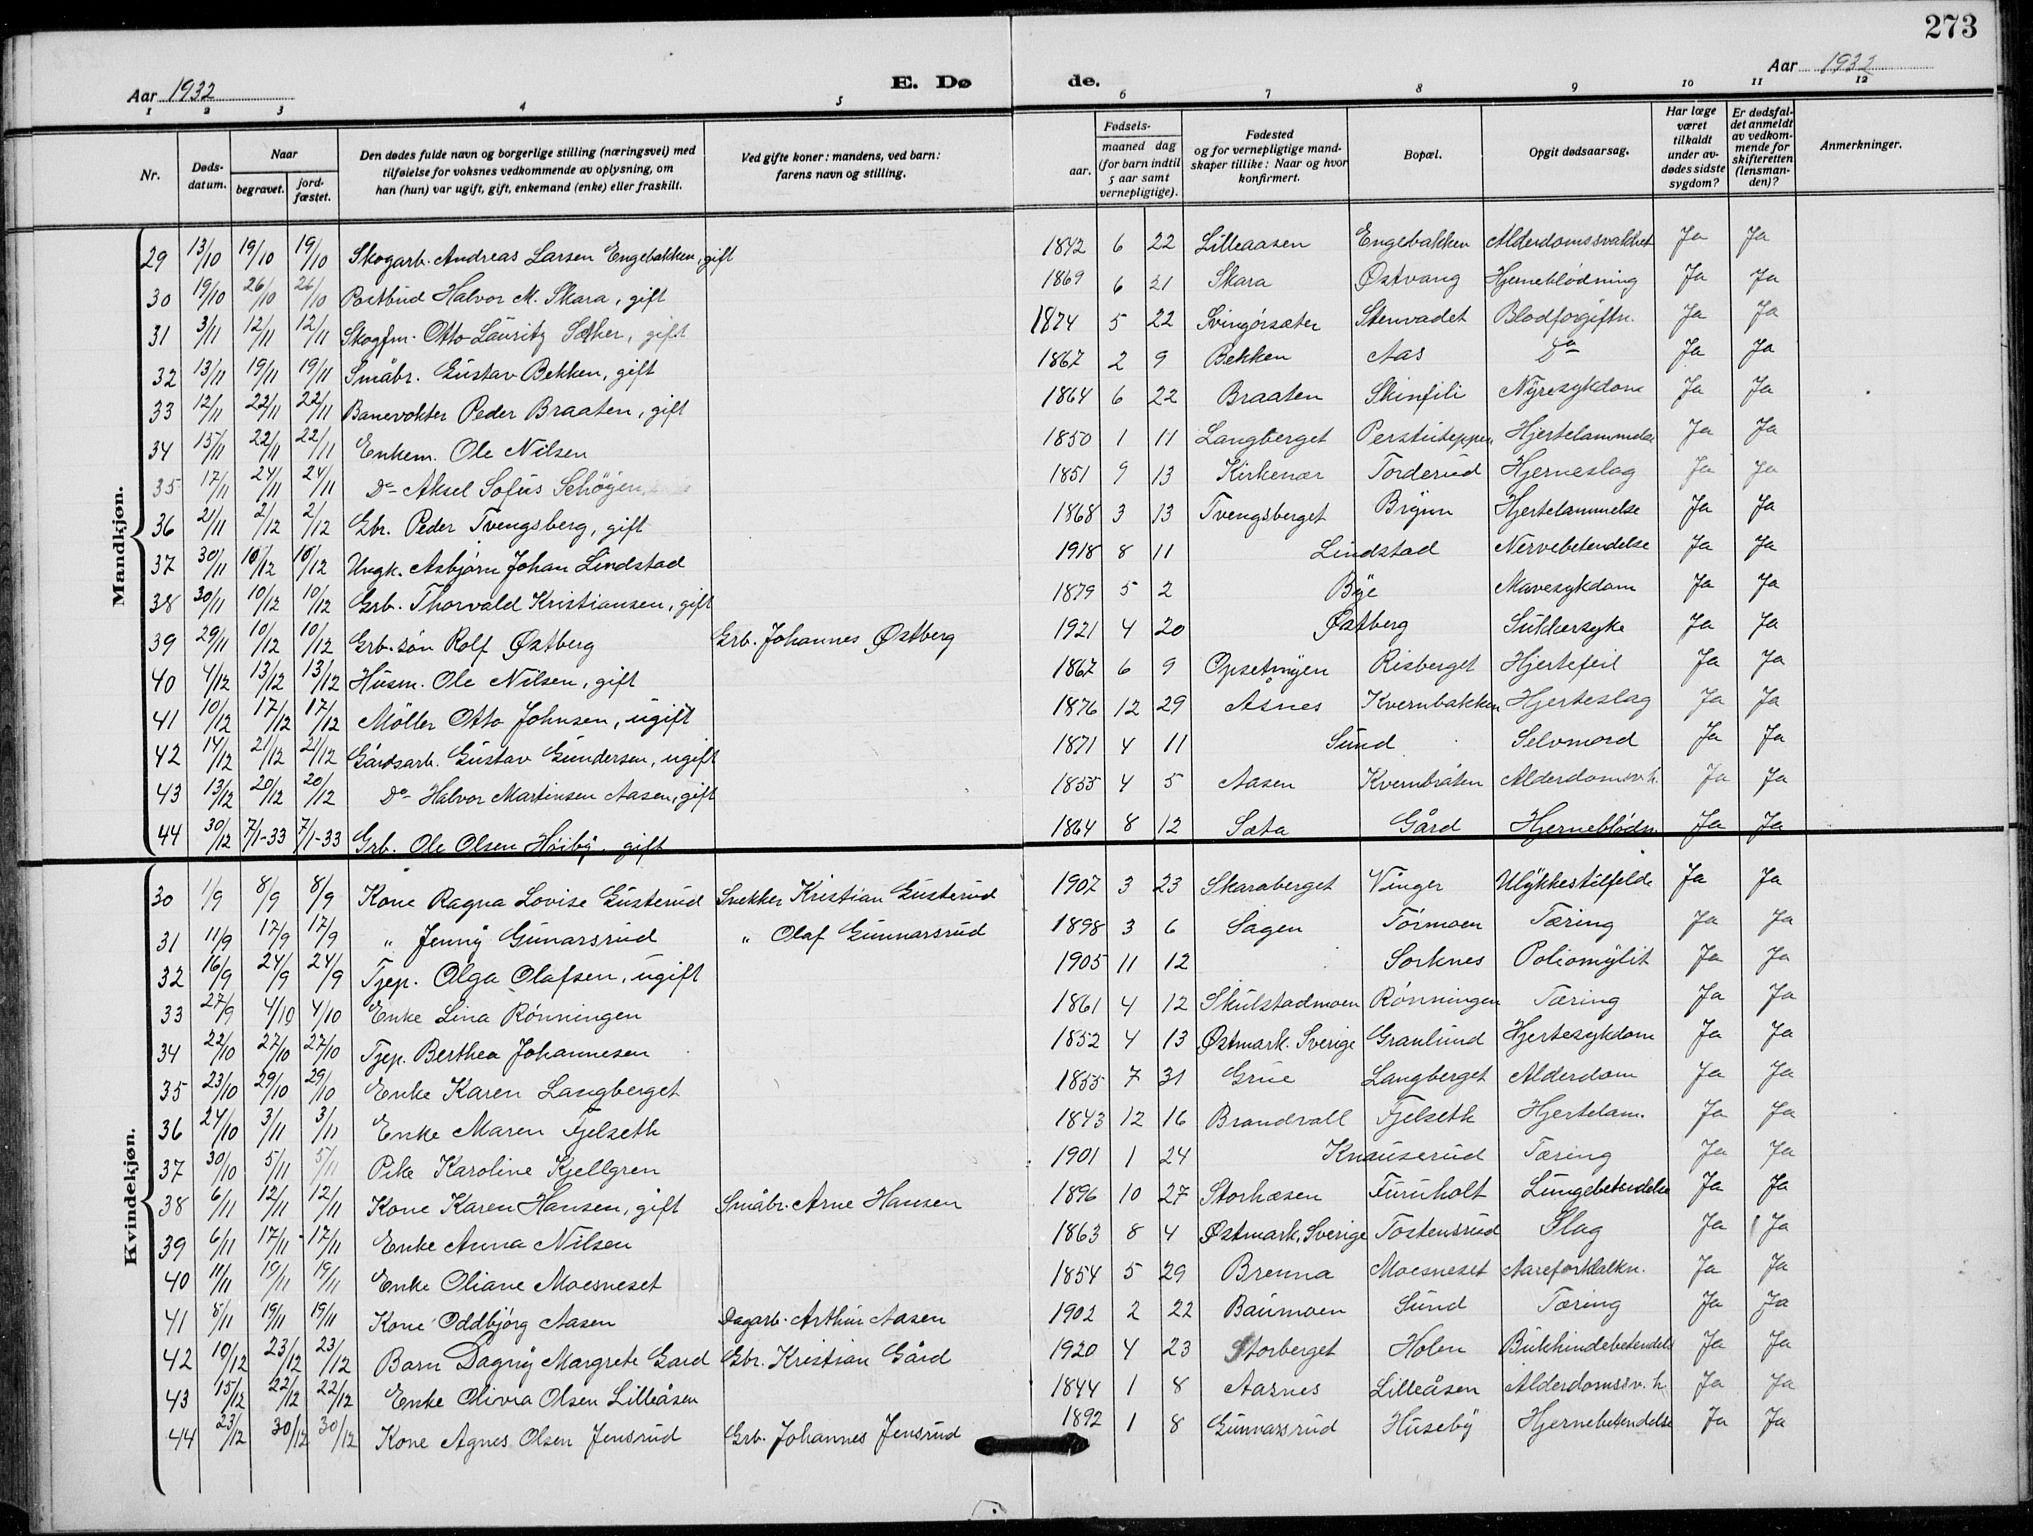 273
Aar 1932
E. Dø
de.
Aar 1932
1 2 3 4 5 6 7 8 9 10 11 12
Nr.
Døds-
datum.
Naar
begravet.
jord-
fæstet.
Den dødes fulde navn og borgerlige stilling (næringsvei) med
tilføielse for voksnes vedkommende av oplysning, om
han (hun) var ugift, gift, enkemand (enke) eller fraskilt.
Ved gifte koner: mandens, ved barn:
farens navn og stilling.
Fødsels-
aar.
maaned dag
(for barn indtil
5 aar samt
vernepligtige).
Fødested
og for vernepligtige mand-
skaper tillike: Naar og hvor
konfirmert.
Bopæl.
Opgit dødsaarsag.
Har læge
været
tilkaldt
under av-
dødes sidste
sygdom?
Er dødsfal-
det anmeldt
av vedkom-
mende for
skifteretten
(lensman-
den)?
Anmerkninger.
Mandkjøn.
29 13/10 19/10 19/10 Skogarb. Andreas Larsen Engebakken, gift 1842 6 22 Lilleaasen Engebakken Alderdomssvakhet Ja Ja
30 19/10 26/10 26/10 Postbud Halvor M. Skara, gift 1869 6 21 Skara Østvang Hjerneblödning Ja Ja
31 3/11 12/11 12/11 Skogfm. Otto Lauritz Sæther, gift 1874 5 22 Svingörsæter Stenvadet Blodforgiftn. Ja Ja
32 13/11 19/11 19/11 Småbr. Gustav Bekken, gift 1867 2 9 Bekken Aas Do Ja Ja
33 12/11 22/11 22/11 Banevokter Peder Braaten, gift 1864 6 22 Braaten Skinfili Nyresykdom Ja Ja
34 15/11 22/11 22/11 Enkem. Ole Nilsen 1850 1 11 Langberget Perstuteppen Hjertelammelse Ja Ja
35 17/11 24/11 24/11 Do Aksel Sofus Schöyen 1851 9 13 Kirkenær Torderud Hjerneslag Ja Ja
36 21/11 2/12 2/12 Gbr. Peder Tvengsberg, gift 1868 3 13 Tvengsberget Brynn Hjertelammelse Ja Ja
37 30/11 10/12 10/12 Ungk. Asbjørn Johan Lindstad 1918 8 11 Lindstad Nervebetendelse Ja Ja
38 30/11 10/12 10/12 Grb. Thorvald Kristiansen, gift 1879 5 2 Bye Mavesykdom Ja Ja
39 29/11 10/12 10/12 Grb. sön Rolf Østberg Grb. Johannes Østberg 1921 4 20 Østberg Sukkersyke Ja Ja
40 4/12 13/12 13/12 Husm. Ole Nilsen, gift 1867 6 9 Opsetmyen Risberget Hjertefeil Ja Ja
41 10/12 17/12 17/12 Möller Otto Johnsen, ugift 1876 12 29 Åsnes Kvernbakken Hjerteslag Ja Ja
42 14/12 21/12 21/12 Gårdsarb. Gustav Gundersen, ugift 1871 4 11 Sund Selvmord Ja Ja
43 13/12 20/12 20/12 Do Halvor Martinsen Aasen, gift 1855 4 5 Aasen Kvernbråten Alderdomsv.h. Ja Ja
44 30/12 7/1-33 7/1-33 Grb. Ole Olsen Höiby. gift 1864 8 12 Sæta Gård Hjerneblödn. Ja Ja
Kvindekjøn.
30 1/9 8/9 8/9 Kone Ragna Lovise Gusterud Snekker Kristian Gusterud 1907 3 23 Skaraberget Vinger Ulykkestilfelde Ja Ja
31 11/9 17/9 17/9 " Jenny Gunarsrud " Olaf Gunnarsrud 1898 3 6 Sagen Törmoen Tæring Ja Ja
32 16/9 24/9 24/9 Tjep. Olga Olafsen, ugift 1905 11 12 Sorknes Poliomylit Ja Ja
33 27/9 4/10 4/10 Enke Lina Rönningen 1861 4 12 Skulstadmoen Rönningen Tæring Ja Ja
34 22/10 27/10 27/10 Tjep. Berthea Johannesen 1852 4 13 Østmark. Sverige Granlund Hjertesykdom Ja Ja
35 23/10 29/10 29/10 Enke Karen Langberget 1855 7 31 Grue Langberget Alderdom Ja Ja
36 24/10 3/11 3/11 Enke Maren Fjelseth 1843 12 16 Brandvall Fjelseth Hjertelam. Ja Ja
37 30/10 5/11 5/11 Pike Karoline Kjellgren 1901 1 24 Knauserud Tæring Ja Ja
38 6/11 12/11 12/11 Kone Karen Hansen, gift Småbr. Arne Hansen 1896 10 27 Storhæsen Furuholt Lungebetendelse Ja Ja
39 6/11 17/11 17/11 Enke Anna Nilsen 1863 8 4 Østmark, Sverige Tostensrud Slag Ja Ja
40 11/11 19/11 19/11 Enke Oliane Moesneset 1854 5 29 Brenna Moesneset Aareforkalkn. Ja Ja
41 8/11 19/11 19/11 Kone Oddbjörg Aasen Dagarb. Arthur Aasen 1902 2 22 Baumoen Sund Tæring Ja Ja
42 19/12 23/12 23/12 Barn Dagny Margrete Gard Gbr. Kristian Gård 1920 4 23 Storberget Holen Bukhindebetendels Ja Ja
43 15/12 22/12 22/12 Enke Olivia Olsen Lilleåsen 1844 1 8 Aasnes Lilleåsen Alderdomssv.h. Ja Ja
44 23/12 30/12 30/12 Kone Agnes Olsen Jensrud Grb. Johannes Jensrud 1892 1 8 Gunnarsrud Huseby Hjernebetendelse Ja Ja